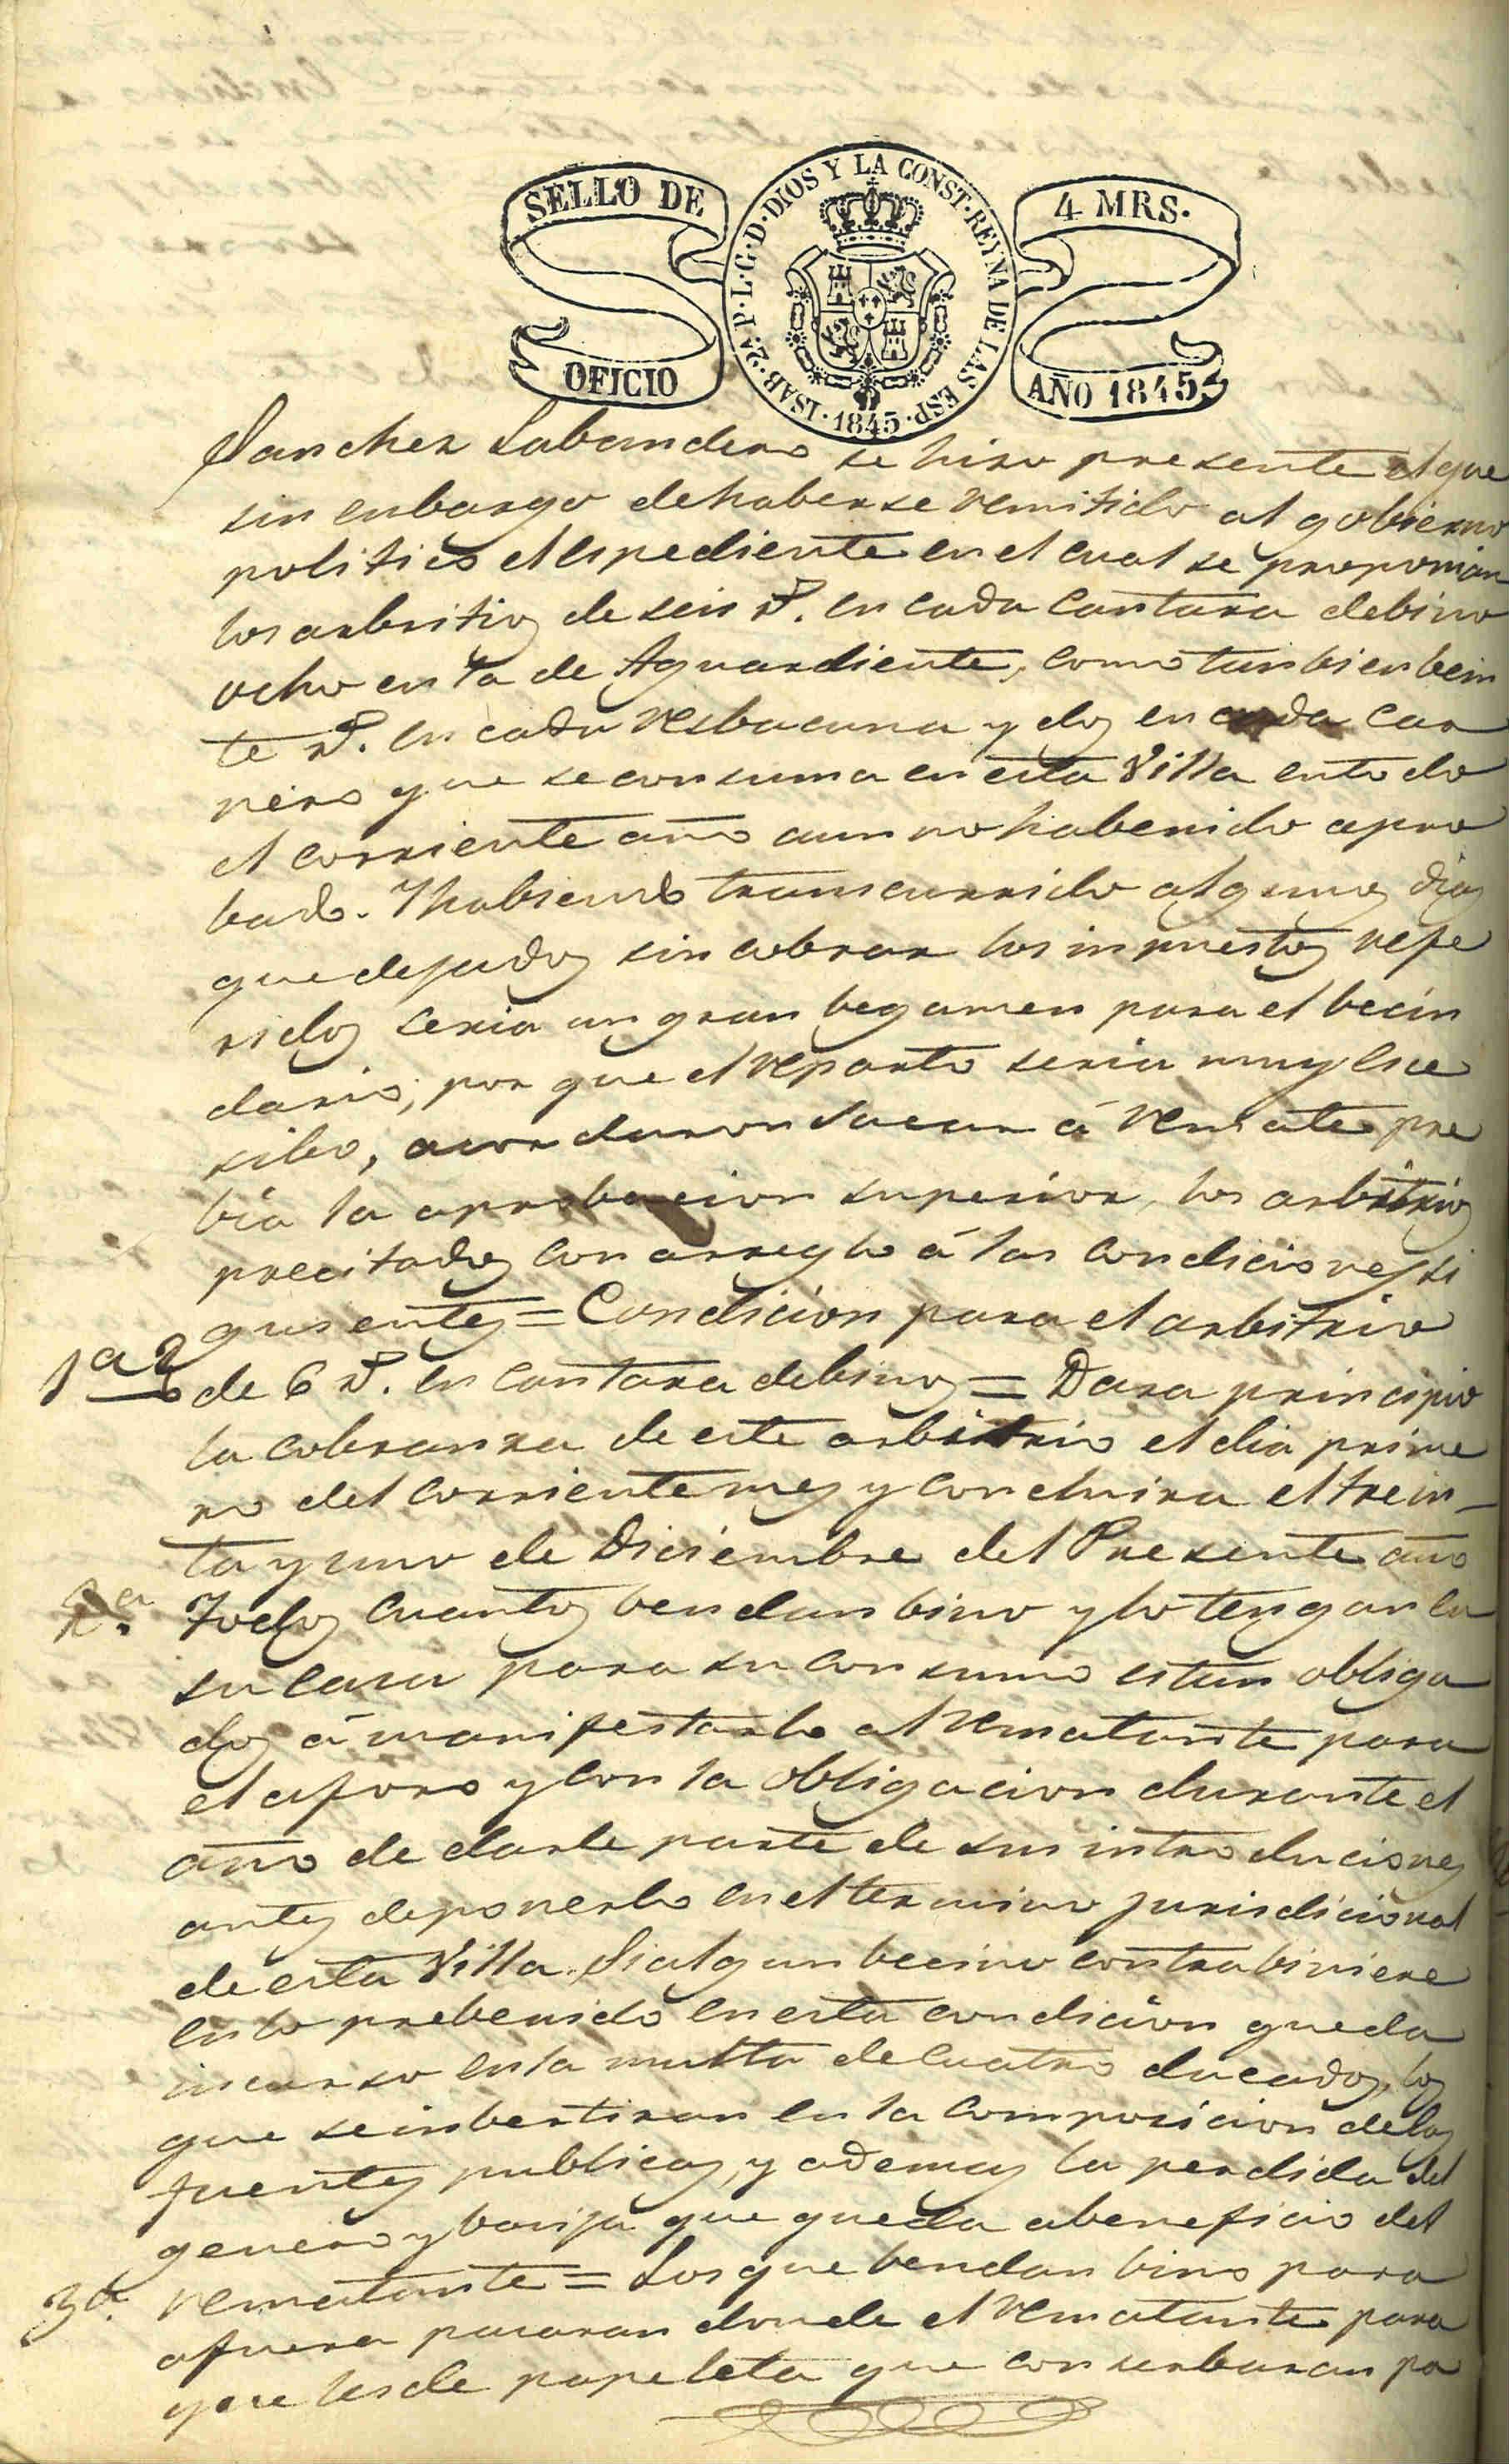 SELLO DE OFICIO
ISAB. 2ª P. L. G. D. DIOS Y LA CONST. REYNA DE LAS ESP. 1845
4 MRS.
AÑO 1845
Sanchez Labandero se hizo presente el que
sin enbargo dehaberse remitido al gobierno
politico el espediente en el cual se proponian
los arbritios de seis rs. en cada cantara debino
ocho en la de Aguardiente, como tanbien bein
te rs. en cada res bacuna y dos en cada car
nero que se consuma en esta Villa en todo
el corriente año aun no ha benido apro
bado. Y habiendo transcurrido algunos dias
que dejados sin cobrar los inpuestos refe
ridos seria un gran begamen para el becin
dario, por que el reparto seria muy esce
sibo, acordaron sacar á remate pre
bia la aprobacion superior, los arbitrios
precitados con arreglo á las condiciones si
guientes = Condicion para el arbitrio
1ª de 6 rs. en cantara debino = Dara principio
la cobranza de este arbitrio el dia prime
ro del corriente mes y concluira el trein-
ta y uno de Diciembre del Presente año
2ª. Todos cuantos bendan bino y lo tengan en
su casa para su consumo estan obliga
dos á manifestarlo al rematante para
el aforo y con la obligacion durante el
año de darle parte de sus introduciones
antes deponerlo en el termino jurisdicional
de esta Villa. Si algun becino contrabiniere
en lo prebenido en esta condicion queda
incurso en la multa de cuatro ducados, los
que se inbertiran en la composicion de las
fuentes publicas, y ademas la perdida del
genero y basija que queda a beneficio del
3ª. rematante = Los que bendan bino para
afuera pasaran donde el rematante para
que les de papeleta que conserbaran pa